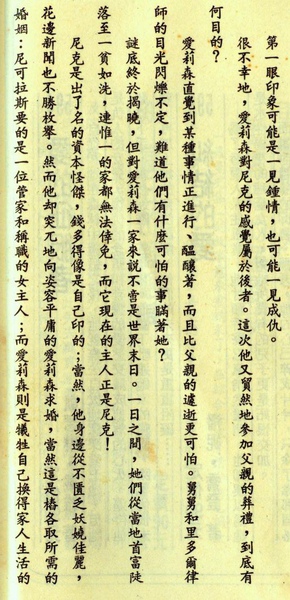 第一眼印象可能是一見鍾情，也可能一見成仇。
很不幸地，愛莉森對尼克的感覺屬於後者。這次他又貿然地參加父親的葬禮，到底有
何目的？
愛莉森直覺到某種事情正進行、醞釀著，而且比父親的遽逝更可怕。舅舅和里多爾律
師的目光閃爍不定，難道他們有什麼可怕的事瞞著她？
謎底終於揭曉，但對愛莉森一家來說不啻是世界末日。一日之間，她們從當地首富陡
落至一貧如洗，連惟一的家都無法倖免，而它現在的主人正是尼克！
尼克是出了名的資本怪傑，錢多得像是自己印的；當然，他身邊從不匱乏妖嬈佳麗，
花邊新聞也不勝枚舉。然而他却突兀地向姿容平庸的愛莉森求婚，當然這是樁各取所需的
婚姻：尼可拉斯要的是一位管家和稱職的女主人；而愛莉森則是犧牲自己換得家人生活的